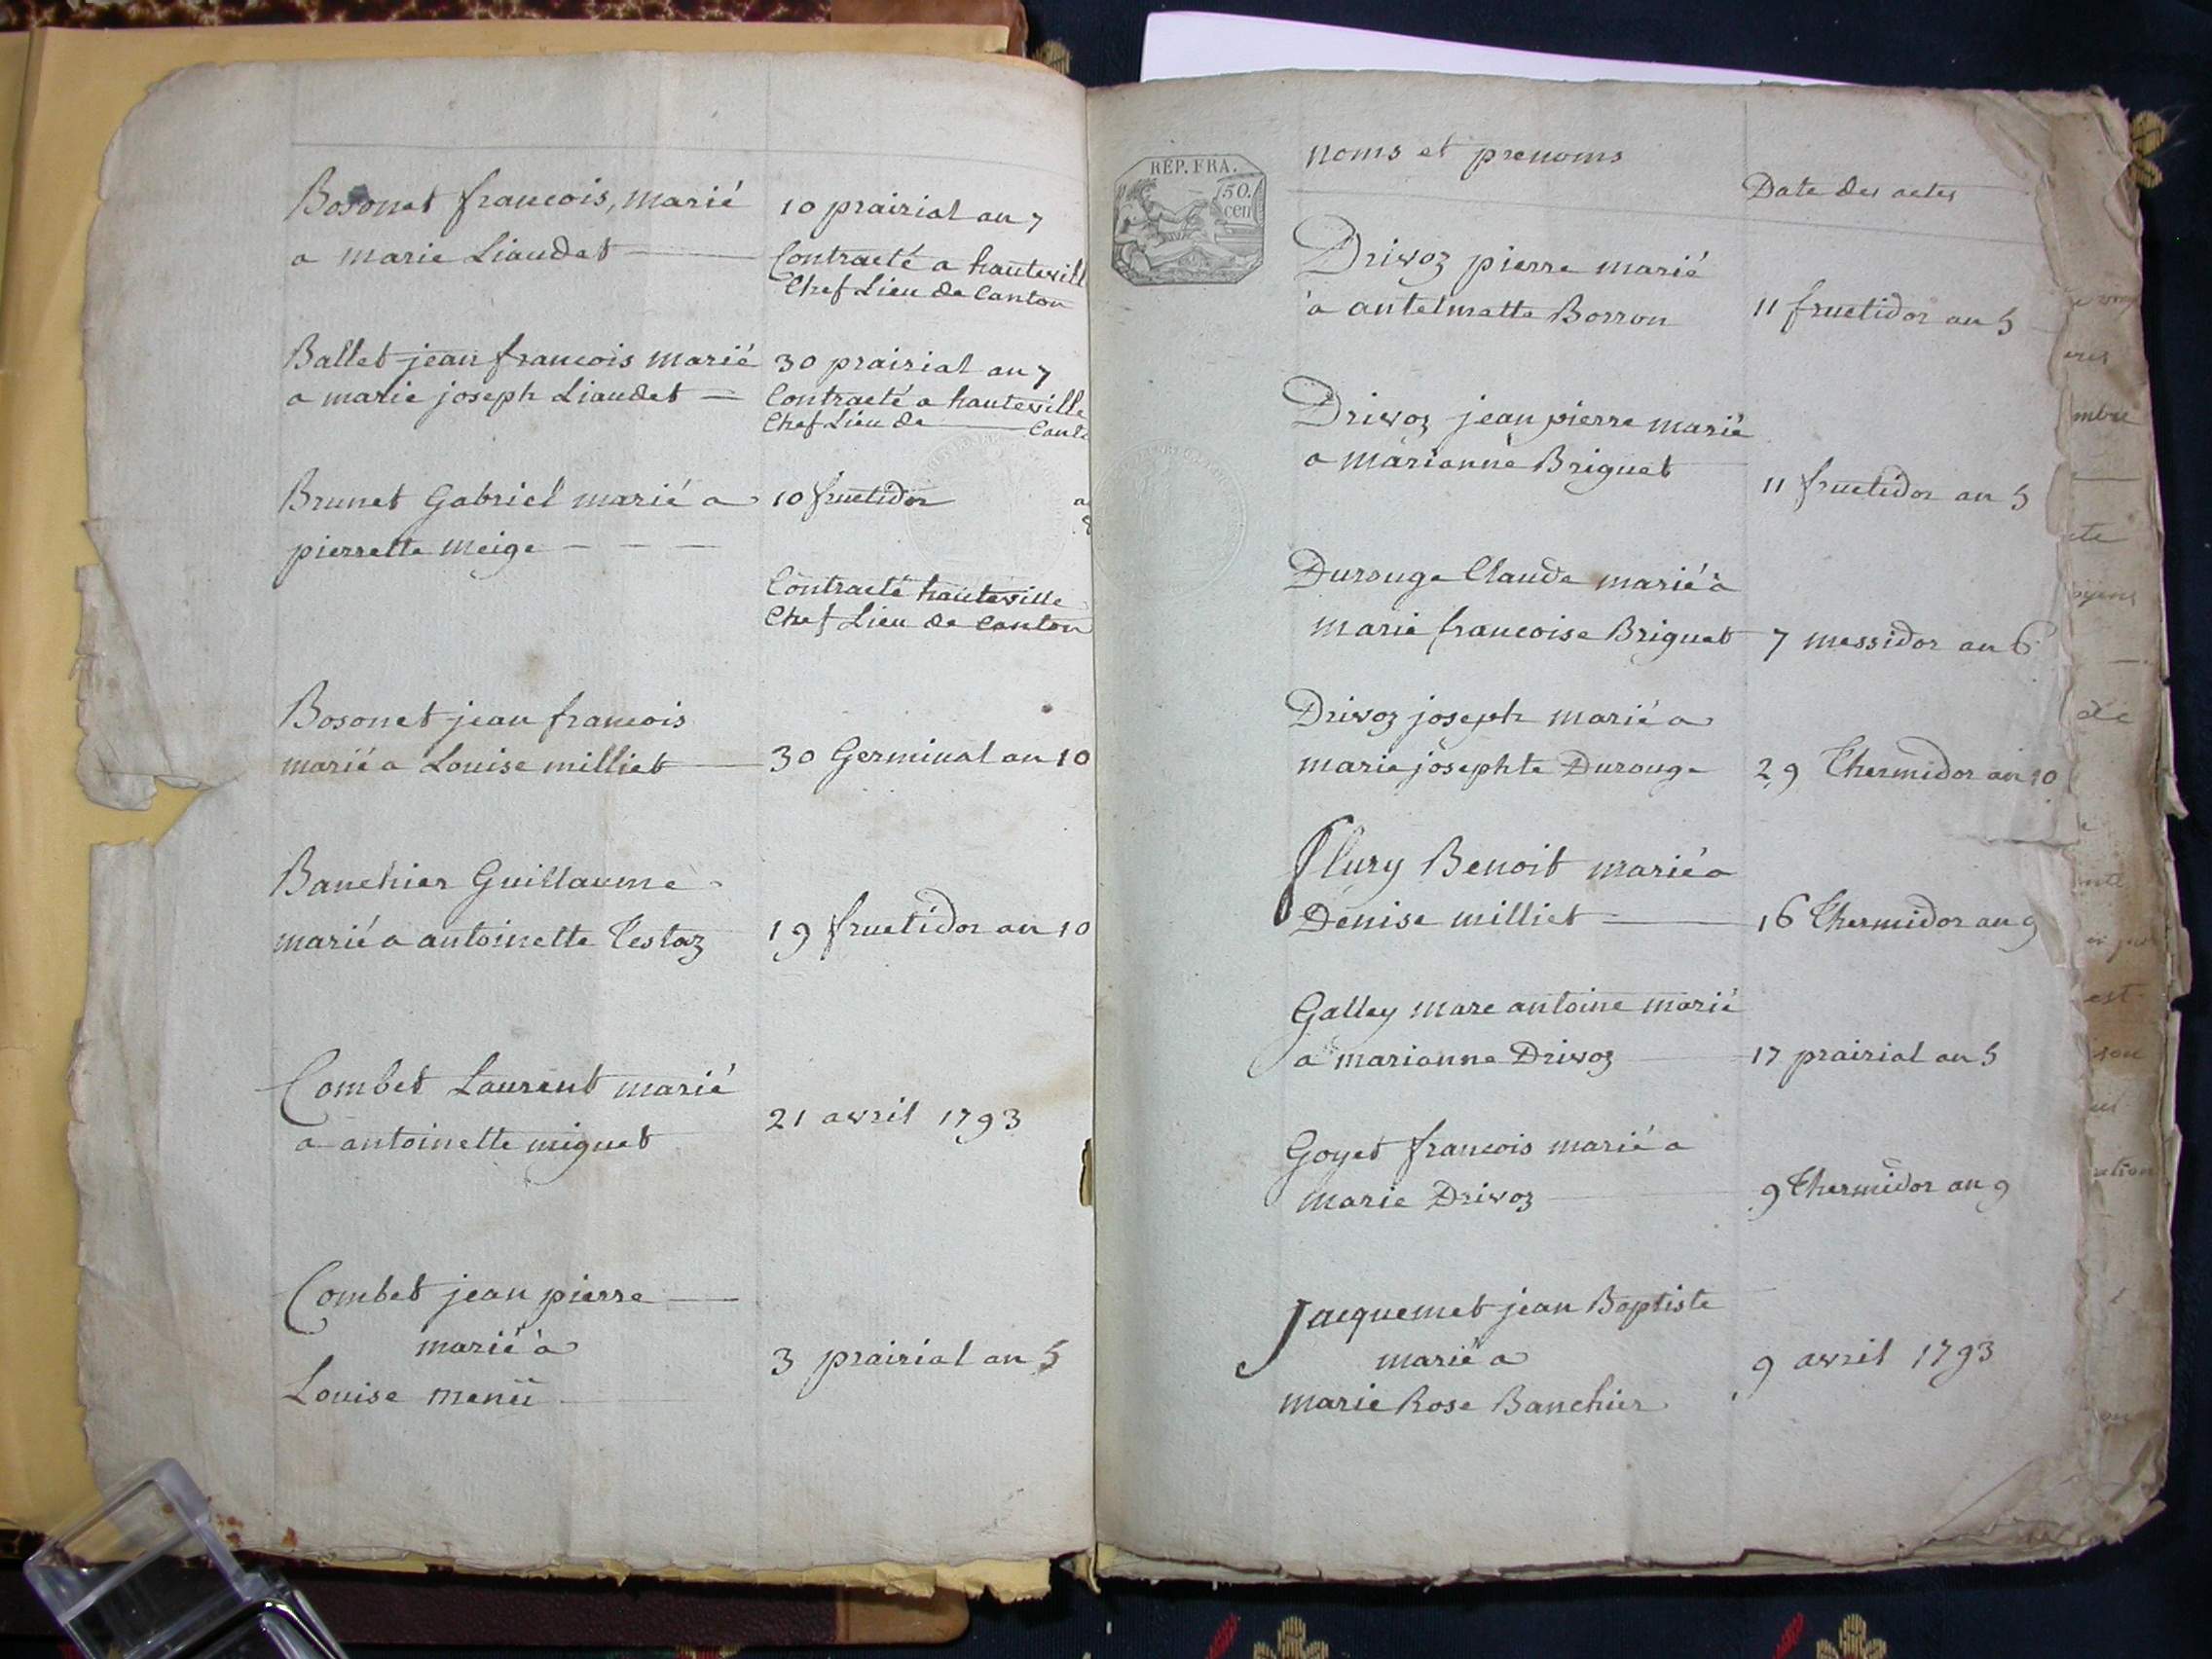 Bosonet francois, marié
a marie Liaudet
10 prairial an 7
Contracté a hautevill
Chef Lieu de Canton
Ballet jean francois marié
a marie joseph Liaudet
30 prairial an 7
Contracté a hauteville
Chef Lieu de Canto
Brunet Gabriel marié a
pierrette meige
10 fructidor a
Contracté hauteville
Chef Lieu de Canton
Bosonet jean francois
marié a Louise milliet
30 Germinal an 10
Banchier Guillaume
marié a antoinette Testaz
19 fructidor an 10
Combet Laurent marié
a antoinette miguet
21 avril 1793
Combet jean pierre
marié à
Louise menü
3 prairial an 5
REP. FRA.
50.
cen
noms et prenoms
Date des actes
Drivoz pierre marié
à antelmette Borron
11 fructidor an 5
Drivoz jean pierre marié
a marianne Briguet
11 fructidor an 5
Durouge Claude marié à
marie francoise Briguet
7 messidor an 6
Drivoz joseph marié a
marie josephte Durouge
29 Thermidor an 10
flury Benoit marié a
Denise milliet
16 Thermidor an 9
Galley marc antoine marié
a marianne Drivoz
17 prairial an 5
Goyet francois marié a
marie Drivoz
9 Thermidor an 9
Jacquemet jean Baptiste
marié a
marie Rose Banchier
9 avril 1793